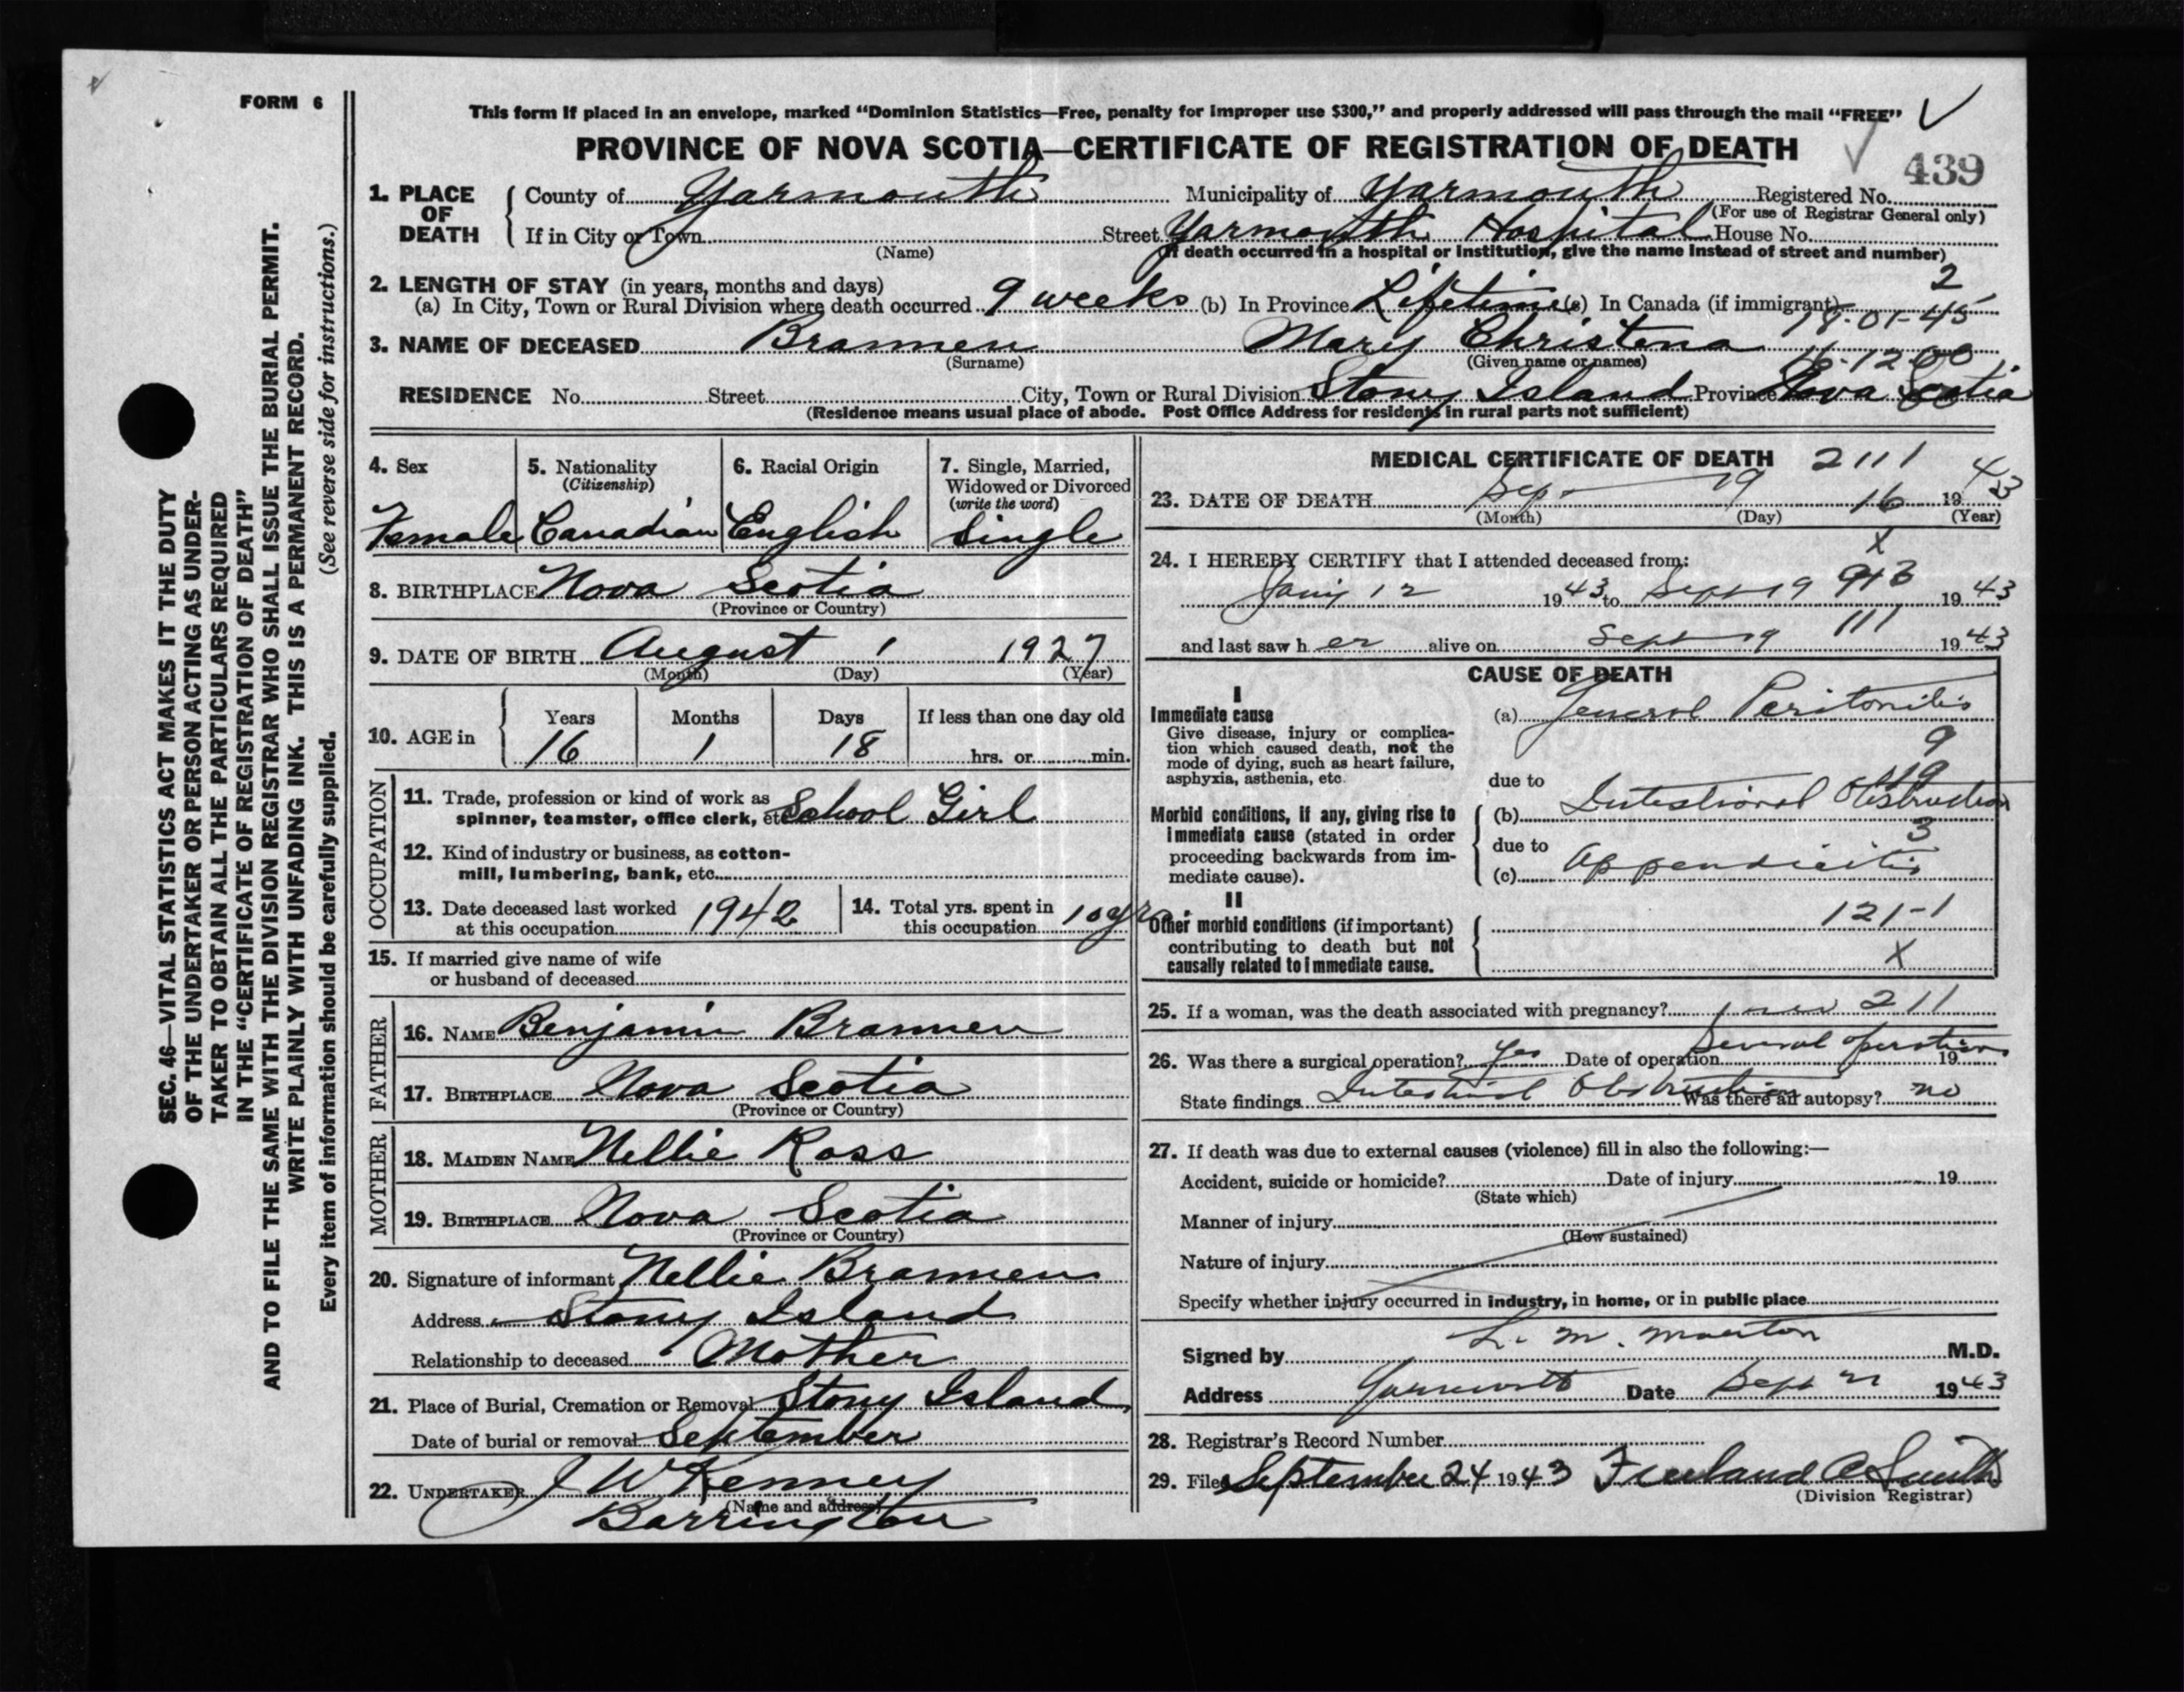 FORM 6
This form if placed in an envelope, marked “Dominion Statistics—Free, penalty for improper use $300,” and properly addressed will pass through the mail “FREE”
PROVINCE OF NOVA SCOTIA—CERTIFICATE OF REGISTRATION OF DEATH
439
1. PLACE OF DEATH County of Yarmouth Municipality of Yarmouth Registered No.
(For use of Registrar General only)
If in City or Town Street Yarmouth Hospital House No.
(Name) (If death occurred in a hospital or institution, give the name instead of street and number)
2. LENGTH OF STAY (in years, months and days) 2
(a) In City, Town or Rural Division where death occurred 9 weeks (b) In Province Lifetime (c) In Canada (if immigrant)
18-01-45
3. NAME OF DECEASED Brannen Mary Christena
(Surname) (Given name or names) 16-12-00
RESIDENCE No. Street City, Town or Rural Division Stony Island Province Nova Scotia
(Residence means usual place of abode. Post Office Address for residents in rural parts not sufficient)
4. Sex Female
5. Nationality (Citizenship) Canadian
6. Racial Origin English
7. Single, Married, Widowed or Divorced (write the word) Single
8. BIRTHPLACE Nova Scotia
(Province or Country)
9. DATE OF BIRTH August 1 1927
(Month) (Day) (Year)
10. AGE in Years 16 Months 1 Days 18 If less than one day old
hrs. or min.
OCCUPATION
11. Trade, profession or kind of work as spinner, teamster, office clerk, etc. School Girl
12. Kind of industry or business, as cotton-mill, lumbering, bank, etc.
13. Date deceased last worked at this occupation 1942
14. Total yrs. spent in this occupation 10 yrs.
15. If married give name of wife or husband of deceased
FATHER
16. NAME Benjamin Brannen
17. BIRTHPLACE Nova Scotia
(Province or Country)
MOTHER
18. MAIDEN NAME Nellie Ross
19. BIRTHPLACE Nova Scotia
(Province or Country)
20. Signature of informant Nellie Brannen
Address Stony Island
Relationship to deceased Mother
21. Place of Burial, Cremation or Removal Stony Island
Date of burial or removal September
22. UNDERTAKER J W Kenney
(Name and address)
Barrington
MEDICAL CERTIFICATE OF DEATH 2111
23. DATE OF DEATH Sep. 19 16 1943
(Month) (Day) (Year)
X
24. I HEREBY CERTIFY that I attended deceased from:
12 1943 to Sept 19 1943
and last saw her alive on Sept 19 111 1943
CAUSE OF DEATH
I
Immediate cause
Give disease, injury or complication which caused death, not the mode of dying, such as heart failure, asphyxia, asthenia, etc.
(a) General Peritonitis
9
19
due to
Morbid conditions, if any, giving rise to immediate cause (stated in order proceeding backwards from immediate cause).
(b) Intestional Obstruction
3
due to
(c) Appendicitis
II
Other morbid conditions (if important) contributing to death but not causally related to immediate cause.
121-1
X
25. If a woman, was the death associated with pregnancy? 211
26. Was there a surgical operation? Yes Date of operation Several operations 19
State findings Intestinal Obstruction Was there an autopsy? no
27. If death was due to external causes (violence) fill in also the following:—
Accident, suicide or homicide? Date of injury 19
(State which)
Manner of injury
(How sustained)
Nature of injury
Specify whether injury occurred in industry, in home, or in public place
Signed by L. M. Morton M.D.
Address Yarmouth Date Sept 21 1943
28. Registrar's Record Number
29. Filed September 24 1943 Freeland C Smith
(Division Registrar)
SEC. 46—VITAL STATISTICS ACT MAKES IT THE DUTY
OF THE UNDERTAKER OR PERSON ACTING AS UNDER-
TAKER TO OBTAIN ALL THE PARTICULARS REQUIRED
IN THE “CERTIFICATE OF REGISTRATION OF DEATH”
AND TO FILE THE SAME WITH THE DIVISION REGISTRAR WHO SHALL ISSUE THE BURIAL PERMIT.
WRITE PLAINLY WITH UNFADING INK. THIS IS A PERMANENT RECORD.
Every item of information should be carefully supplied. (See reverse side for instructions.)